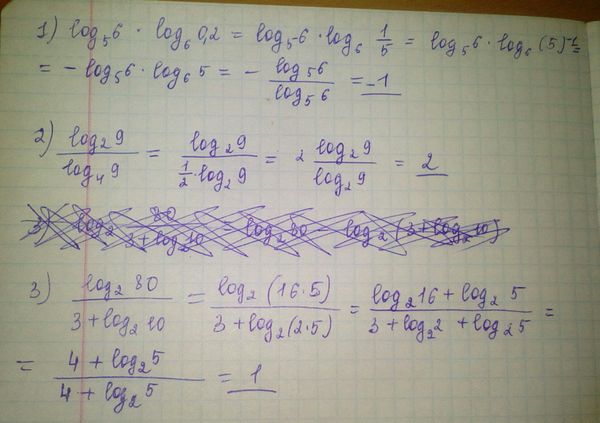 1) log₅6 · log₆0,2 = log₅6 · log₆ 1/5 = log₅6 · log₆(5)⁻¹ =
= - log₅6 · log₆5 = - log₅6 / log₅6 = -1
2) log₂9 / log₄9 = log₂9 / (1/2 · log₂9) = 2 log₂9 / log₂9 = 2
3) log₂ 80 / 3 + log₂10 log₂80 - log₂(3 + log₂10)
3) log₂80 / 3 + log₂10 = log₂(16·5) / 3 + log₂(2·5) = log₂16 + log₂5 / 3 + log₂2 + log₂5 =
= 4 + log₂5 / 4 + log₂5 = 1